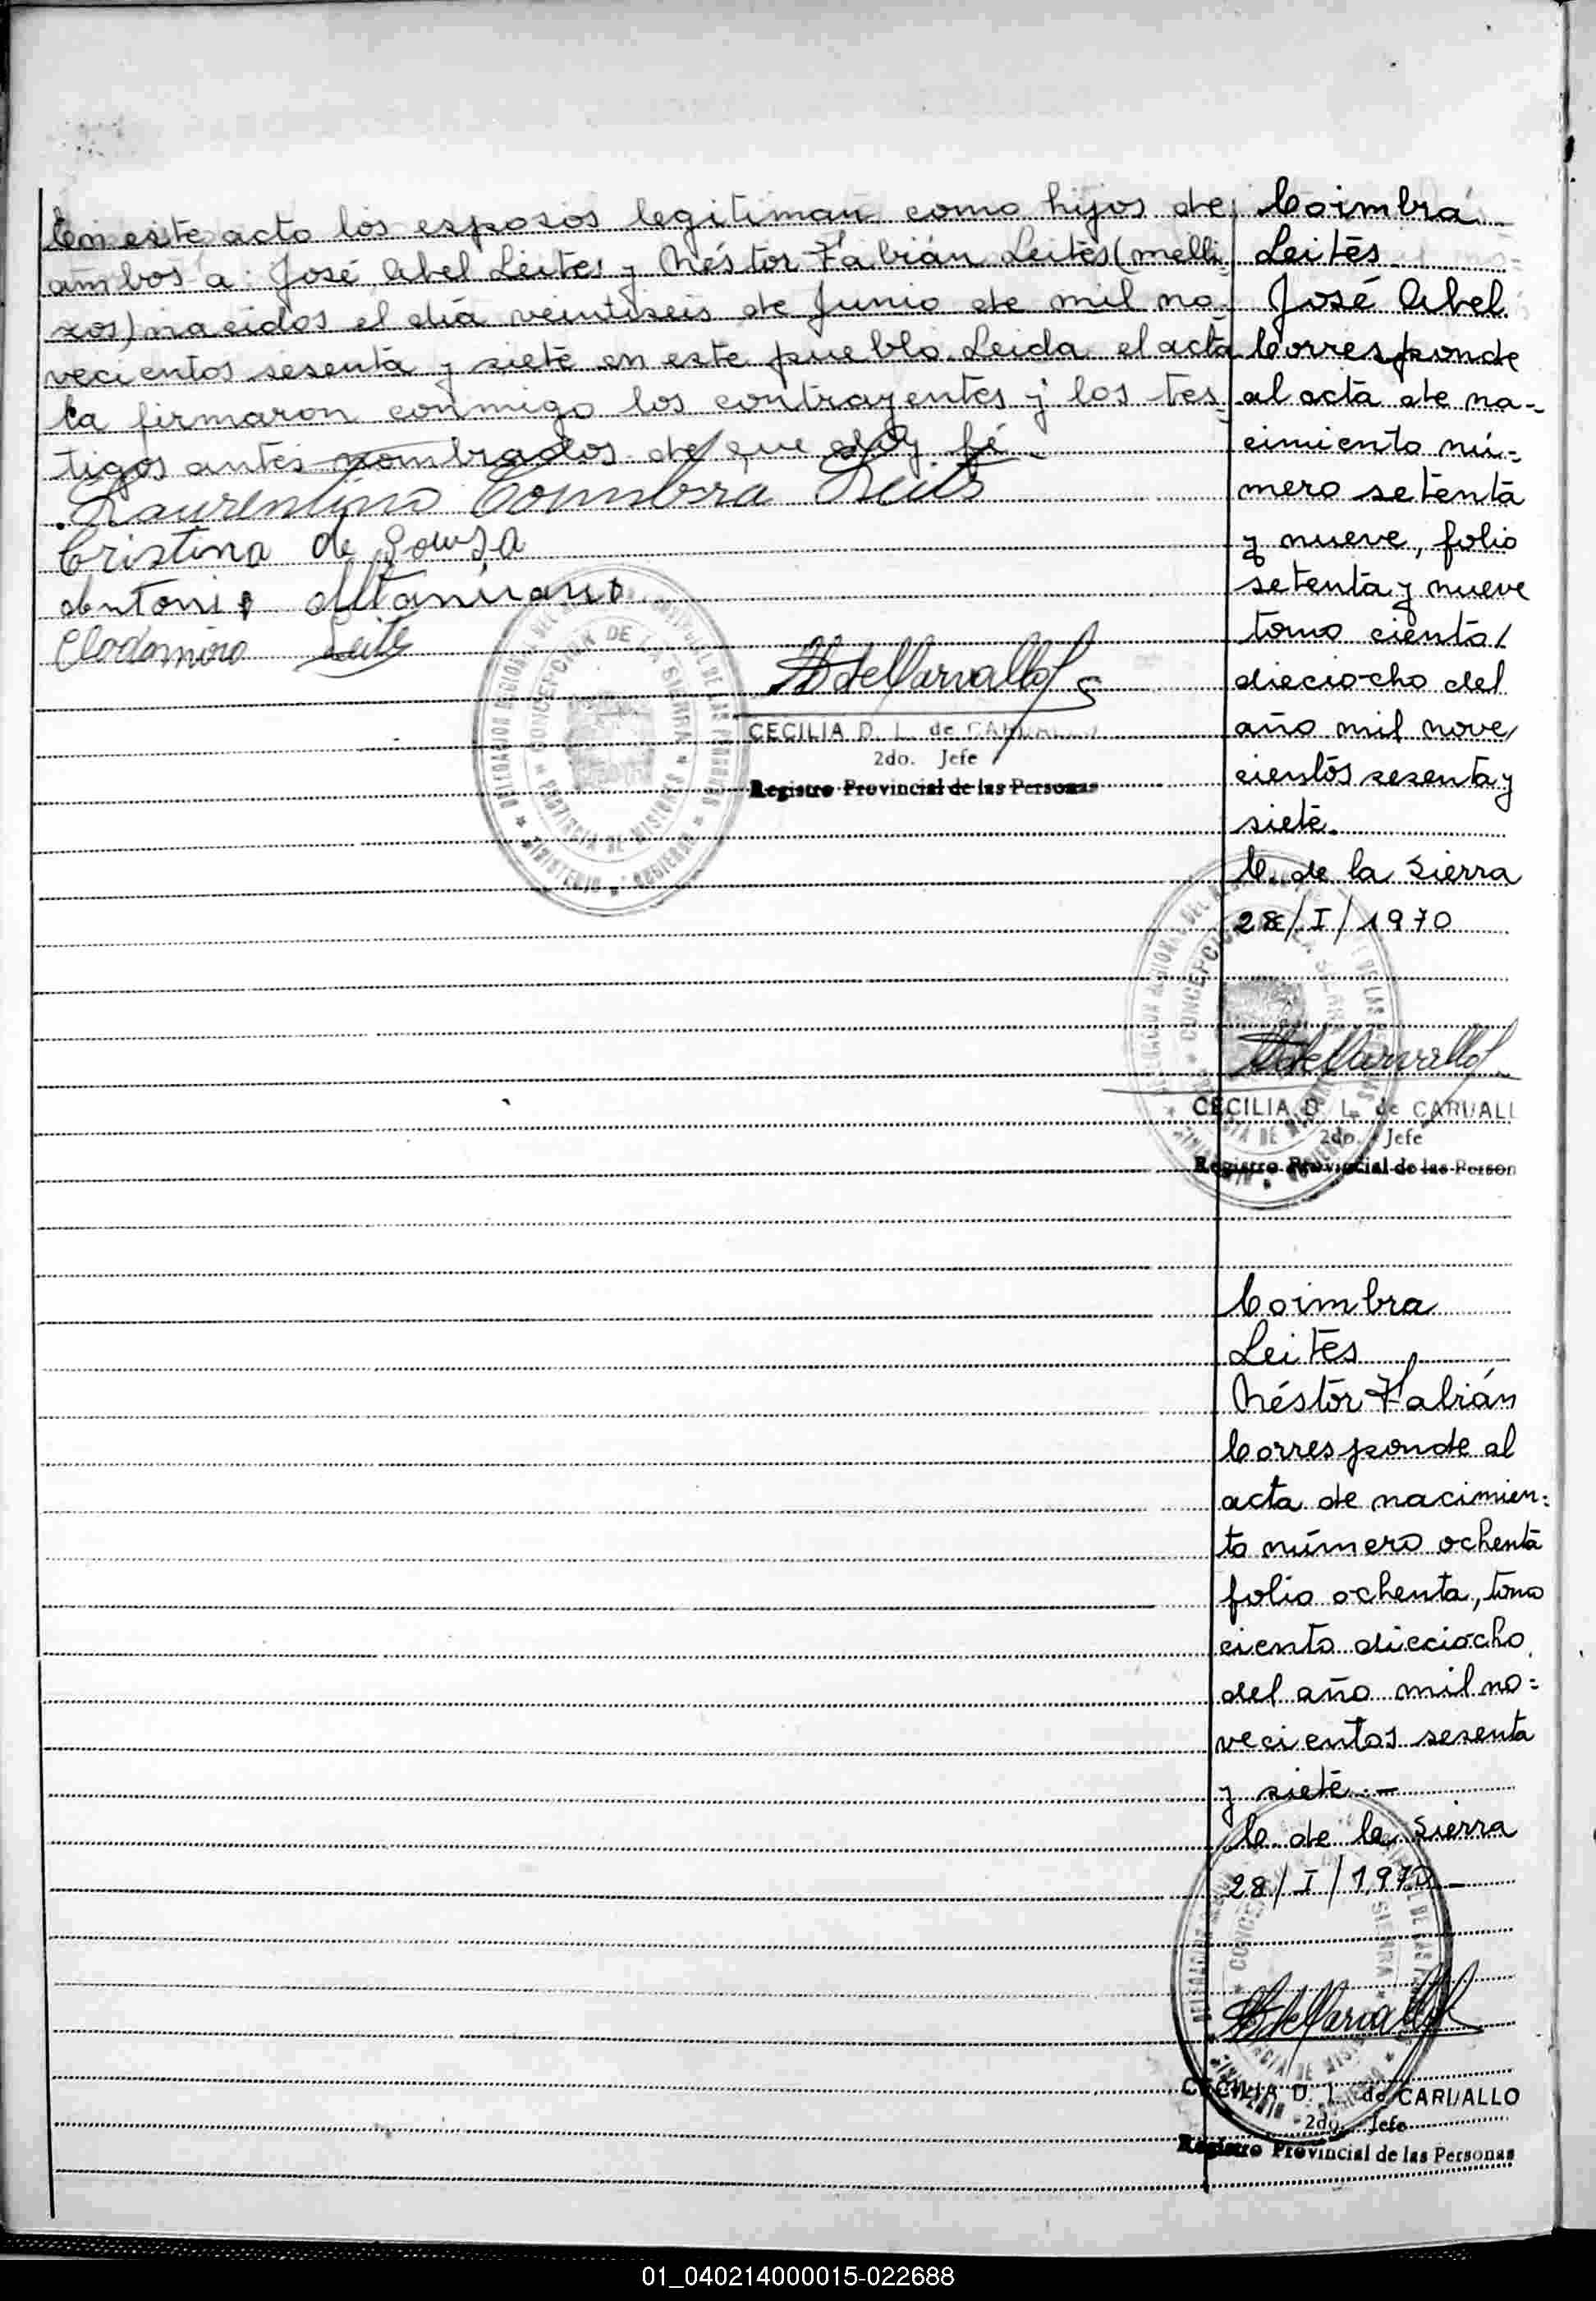 En este acto los esposos legitiman como hijos de
ambos a: José Abel Leites y Néstor Fabián Leites (melli-
zos) nacidos el día veintiseis de Junio de mil no-
vecientos sesenta y siete en este pueblo. Leida el acta
la firmaron conmigo los contrayentes y los tes-
tigos antes nombrados de que doy fé
Laurentino Coimbra Leites
Cristina de Souza
Antonio Altamirano
Clodomiro Leites
DELEGACION REGIONAL DEL DE LAS PERSONAS
CONCEPCION DE LA SIERRA
PROVINCIA DE MISIONES
MINISTERIO GOBIERNO
CdeCarvallo
CECILIA D. L. de CARVALLO
2do. Jefe
Registro Provincial de las Personas
Coimbra
Leites
José Abel
Corresponde
al acta de na-
cimiento nú-
mero setenta
y nueve, folio
setenta y nueve
tomo ciento/
dieciocho del
año mil nove/
cientos sesenta y
siete.
C. de la Sierra
28/I/1970
CONCEPCION SIERRA
CdeCarvallo
CECILIA D. L. de CARVALL
2do. Jefe
Registro Provincial de las Person
Coimbra
Leites
Néstor Fabián
Corresponde al
acta de nacimien-
to número ochenta
folio ochenta, tomo
ciento dieciocho
del año mil no=
vecientos sesenta
y siete.-
C. de la Sierra
28/I/1970-
SIERRA
CdeCarvallo
CECILIA D. L. de CARVALLO
2do. Jefe
Registro Provincial de las Personas
01_040214000015-022688